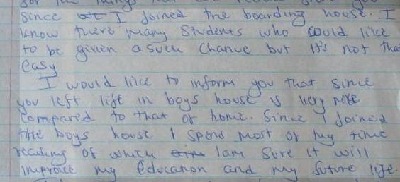 for the things that
since I joined the boarding house. I
know there many students who could like
to be given a such chance but it's not that
easy
I would like to inform you that since
you left life in boys house is very
compared to that of home. Since I joined
the boys house I spend most of my time
reading of which I am sure it will
improve my Education and my future life